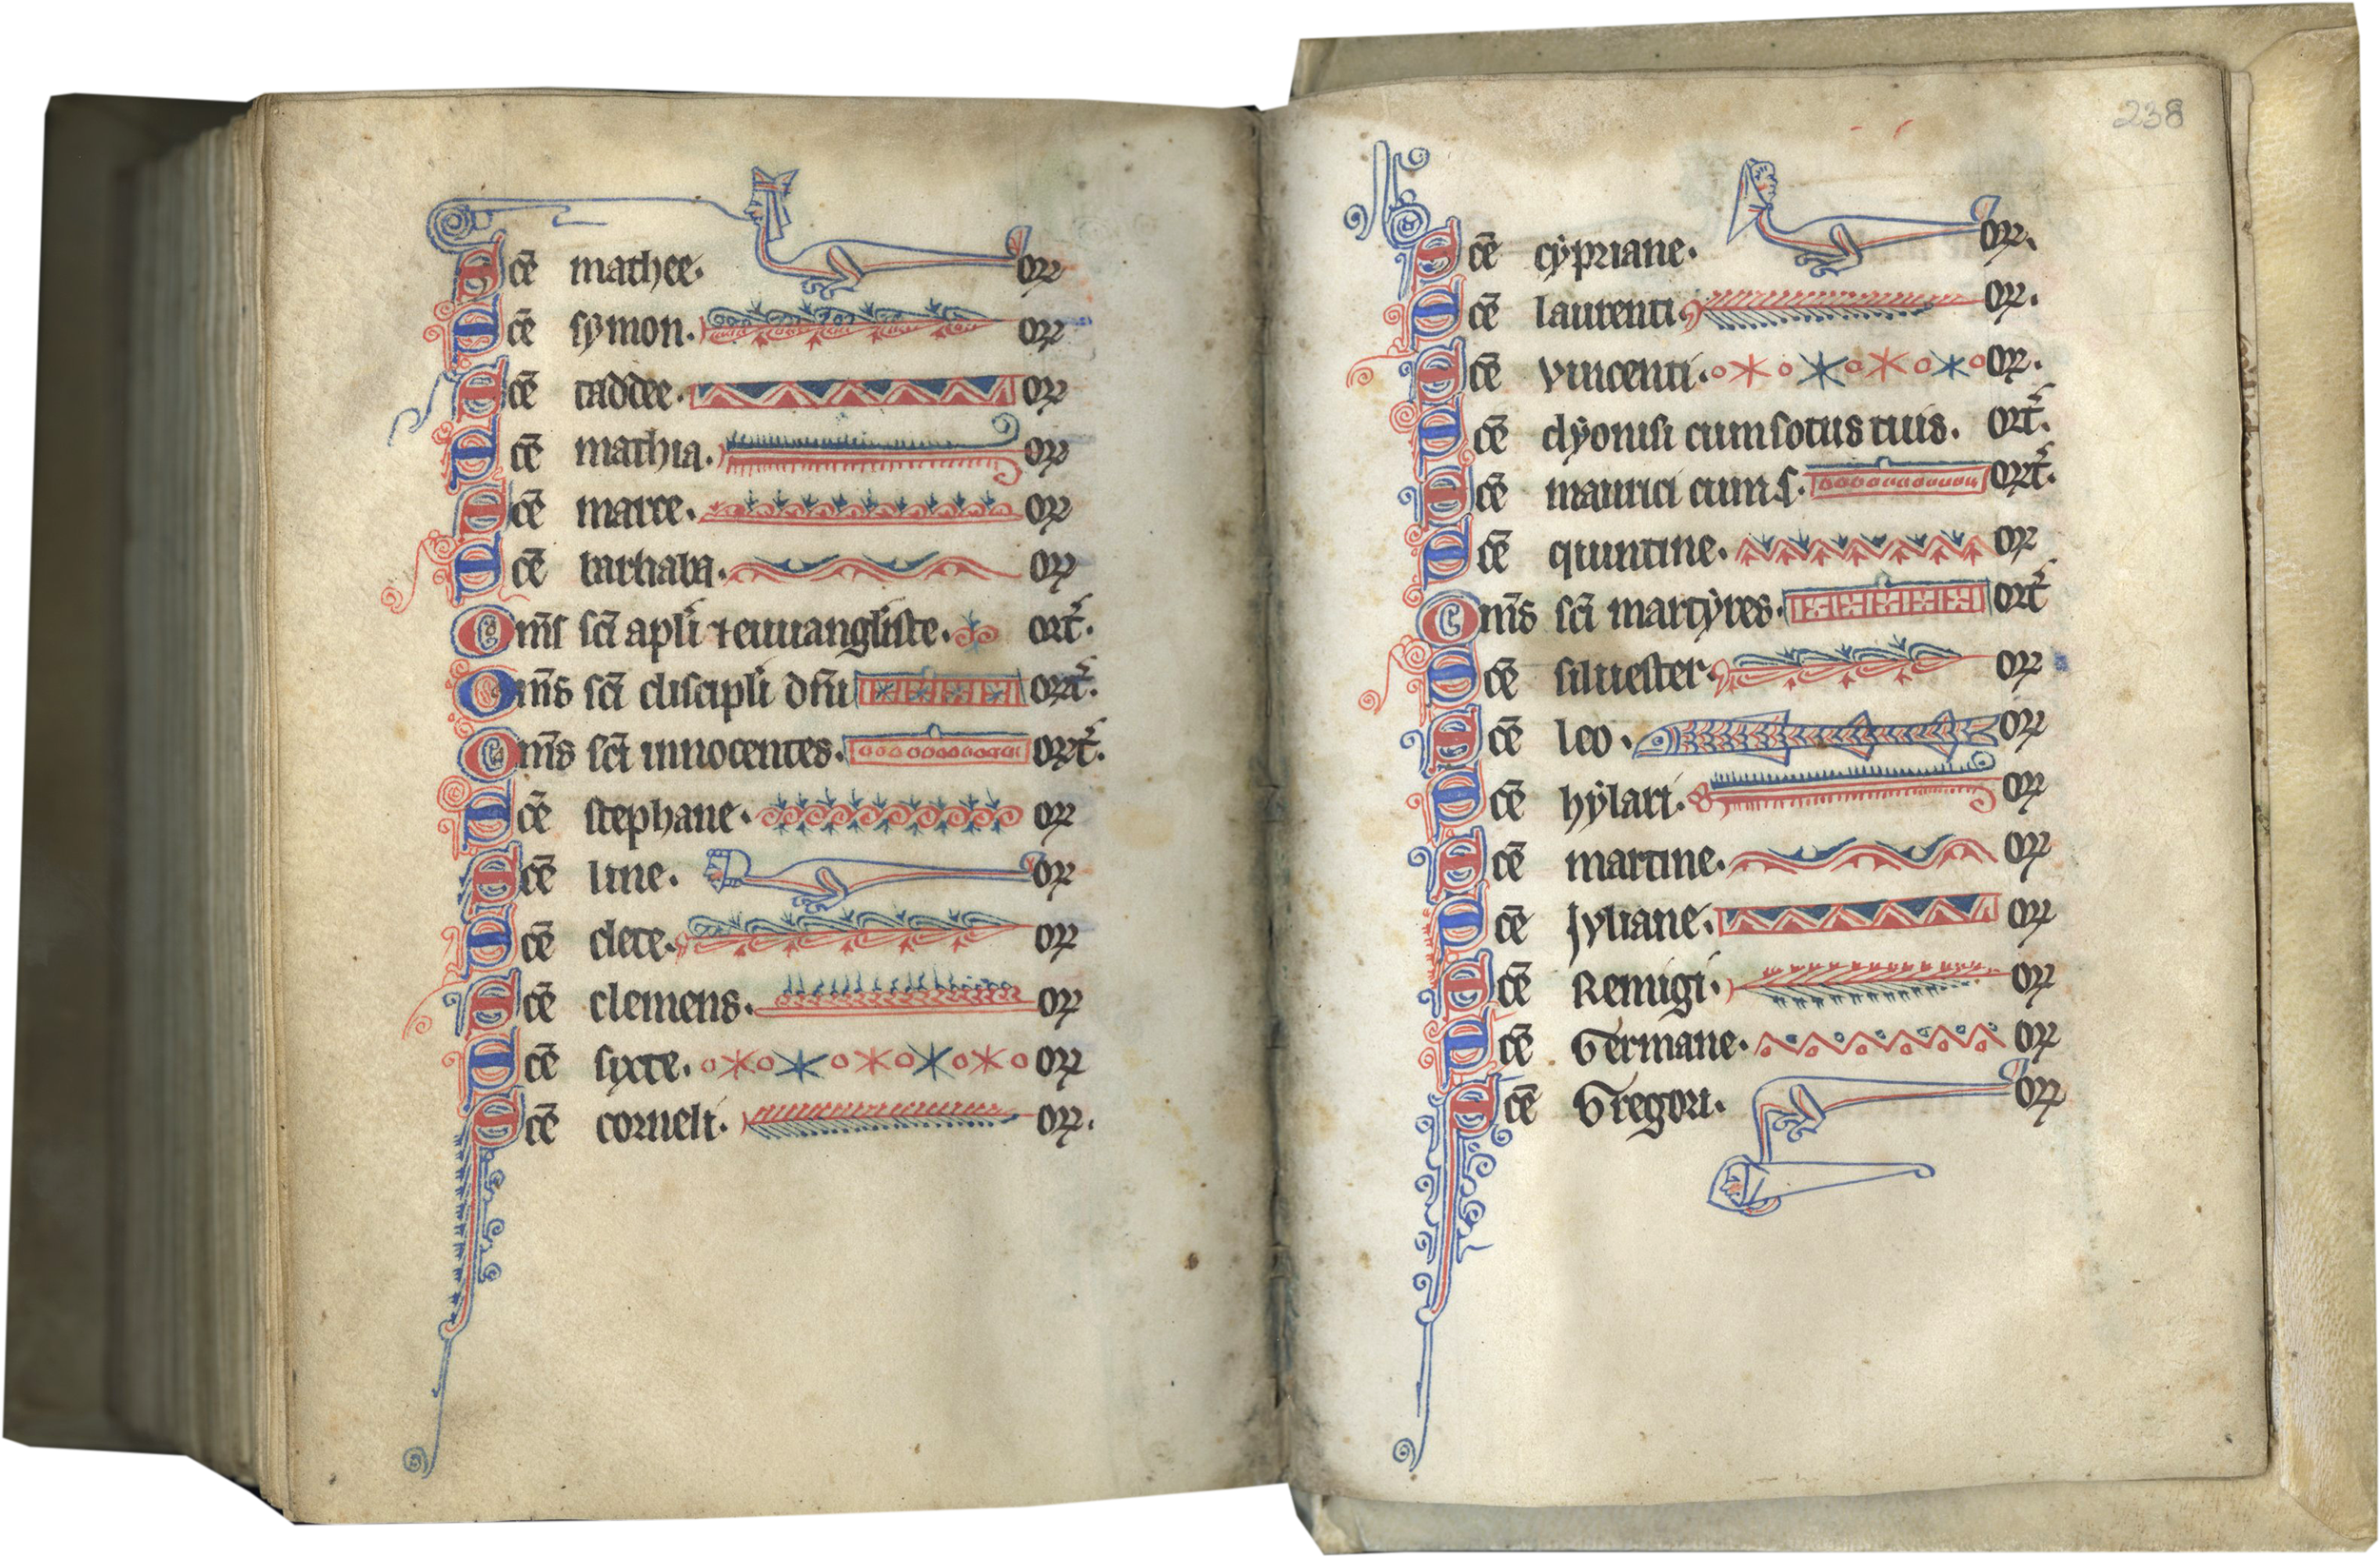 Scē mathee. or
Scē symon. or
Scē taddee. or
Scē mathia. or
Scē marce. or
Scē barnaba. or
Om̄s sc̄i apl̄i ⁊ euuangliste. ort̄.
Om̄s sc̄i discipl̄i dn̄i ort̄.
Om̄s sc̄i innocentes. ort̄.
Scē stephane. or
Scē line. or
Scē clete. or
Scē clemens. or
Scē syxte. or
Scē corneli. or.
238
Scē cẏpriane. or.
Scē laurenti or.
Scē vincenti. or.
Scē dẏonisi cum sotiis tuis. ort̄.
Scē maurici cum s. ort̄.
Scē quintine. or
Om̄s sc̄i martẏres. ort̄
Scē siluester. or
Scē leo. or
Scē hẏlari. or
Scē martine. or
Scē Jyliane. or
Scē Remigi. or
Scē Germane. or
Scē Gregori. or